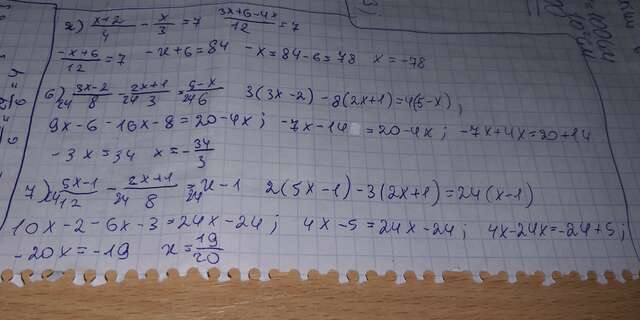 2) (x+2)/4 - x/3 = 7   (3x+6-4x)/12 = 7
(-x+6)/12 = 7   -x+6=84   -x=84-6=78   x=-78
6) 24 (3x-2)/8 - 24 (2x+1)/3 = 24 (5-x)/6   3(3x-2)-8(2x+1)=4(5-x);
9x-6-16x-8=20-4x; -7x-14=20-4x; -7x+4x=20+14
-3x=34   x=-34/3
7) 24 (5x-1)/12 - 24 (2x+1)/8 = 24 x-1   2(5x-1)-3(2x+1)=24(x-1)
10x-2-6x-3=24x-24; 4x-5=24x-24; 4x-24x=-24+5;
-20x=-19   x=19/20